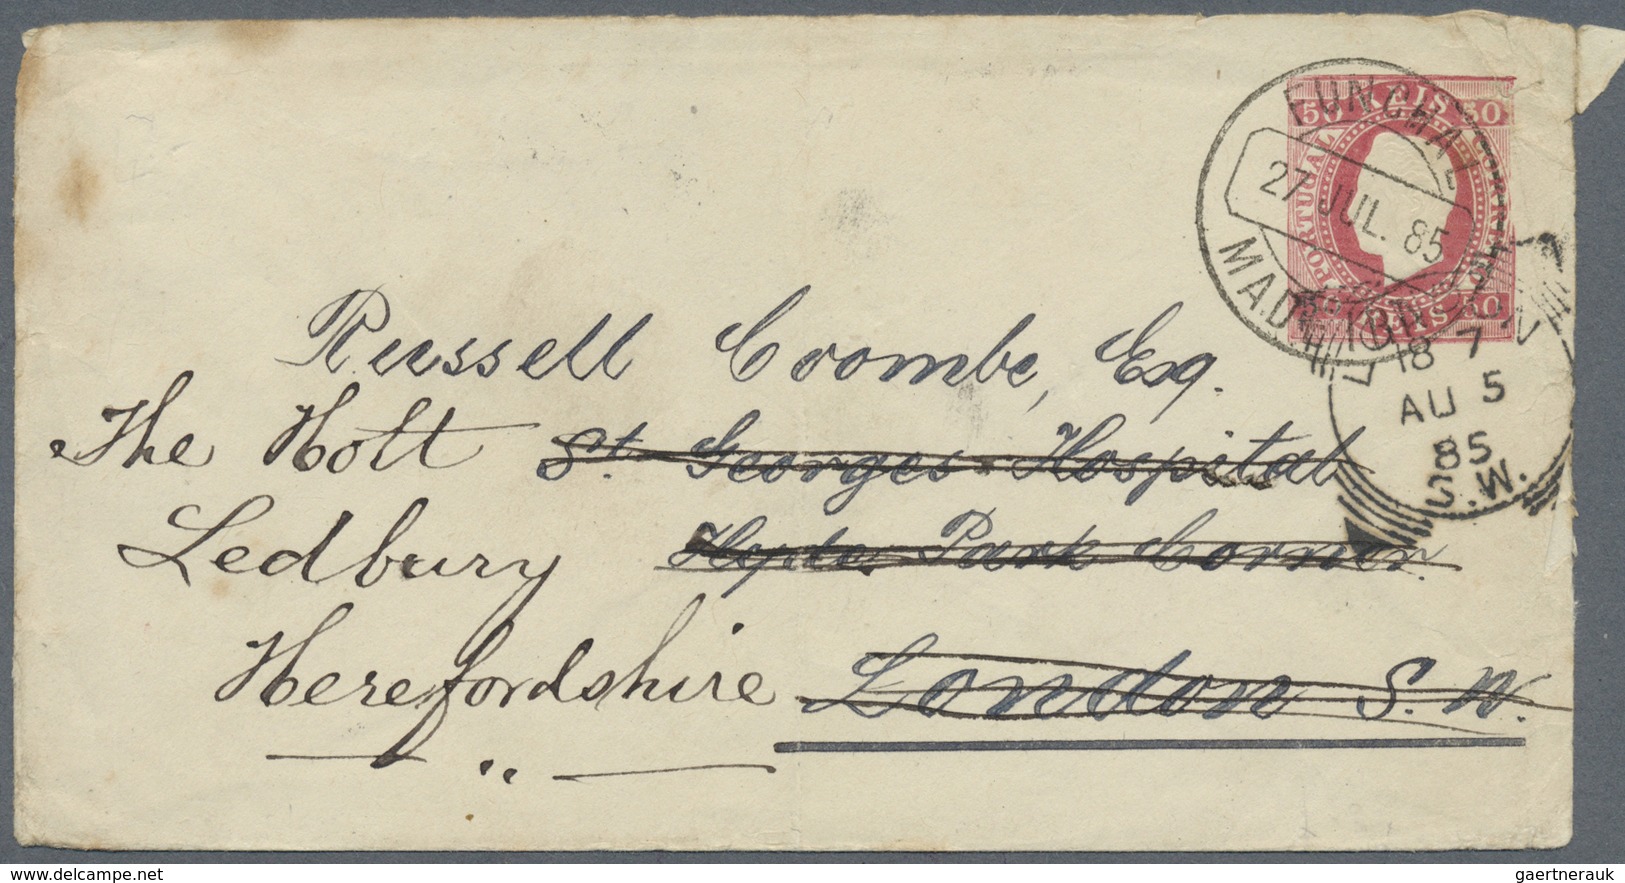 50 REIS 50
PORTUGAL
FUNCHAL
27 JUL. 85
Russell Coombe, Esq.
The Holt St Georges Hospital
Ledbury Hyde Park Corner
Herefordshire London S.W.
18 7
AU 5
85
S.W.
delcampe.net
gaertnerauk